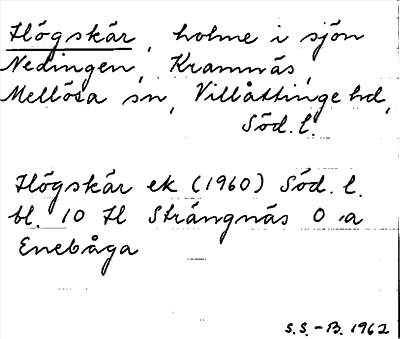 Högskär, holme i sjön
Nedingen, Kramnäs,
Mellösa sn, Villåttinge hd,
Söd. l.
Högskär ek (1960) Söd. l.
bl. 10 H Strängnäs O :a
Enebåga
S.S.-B. 1962